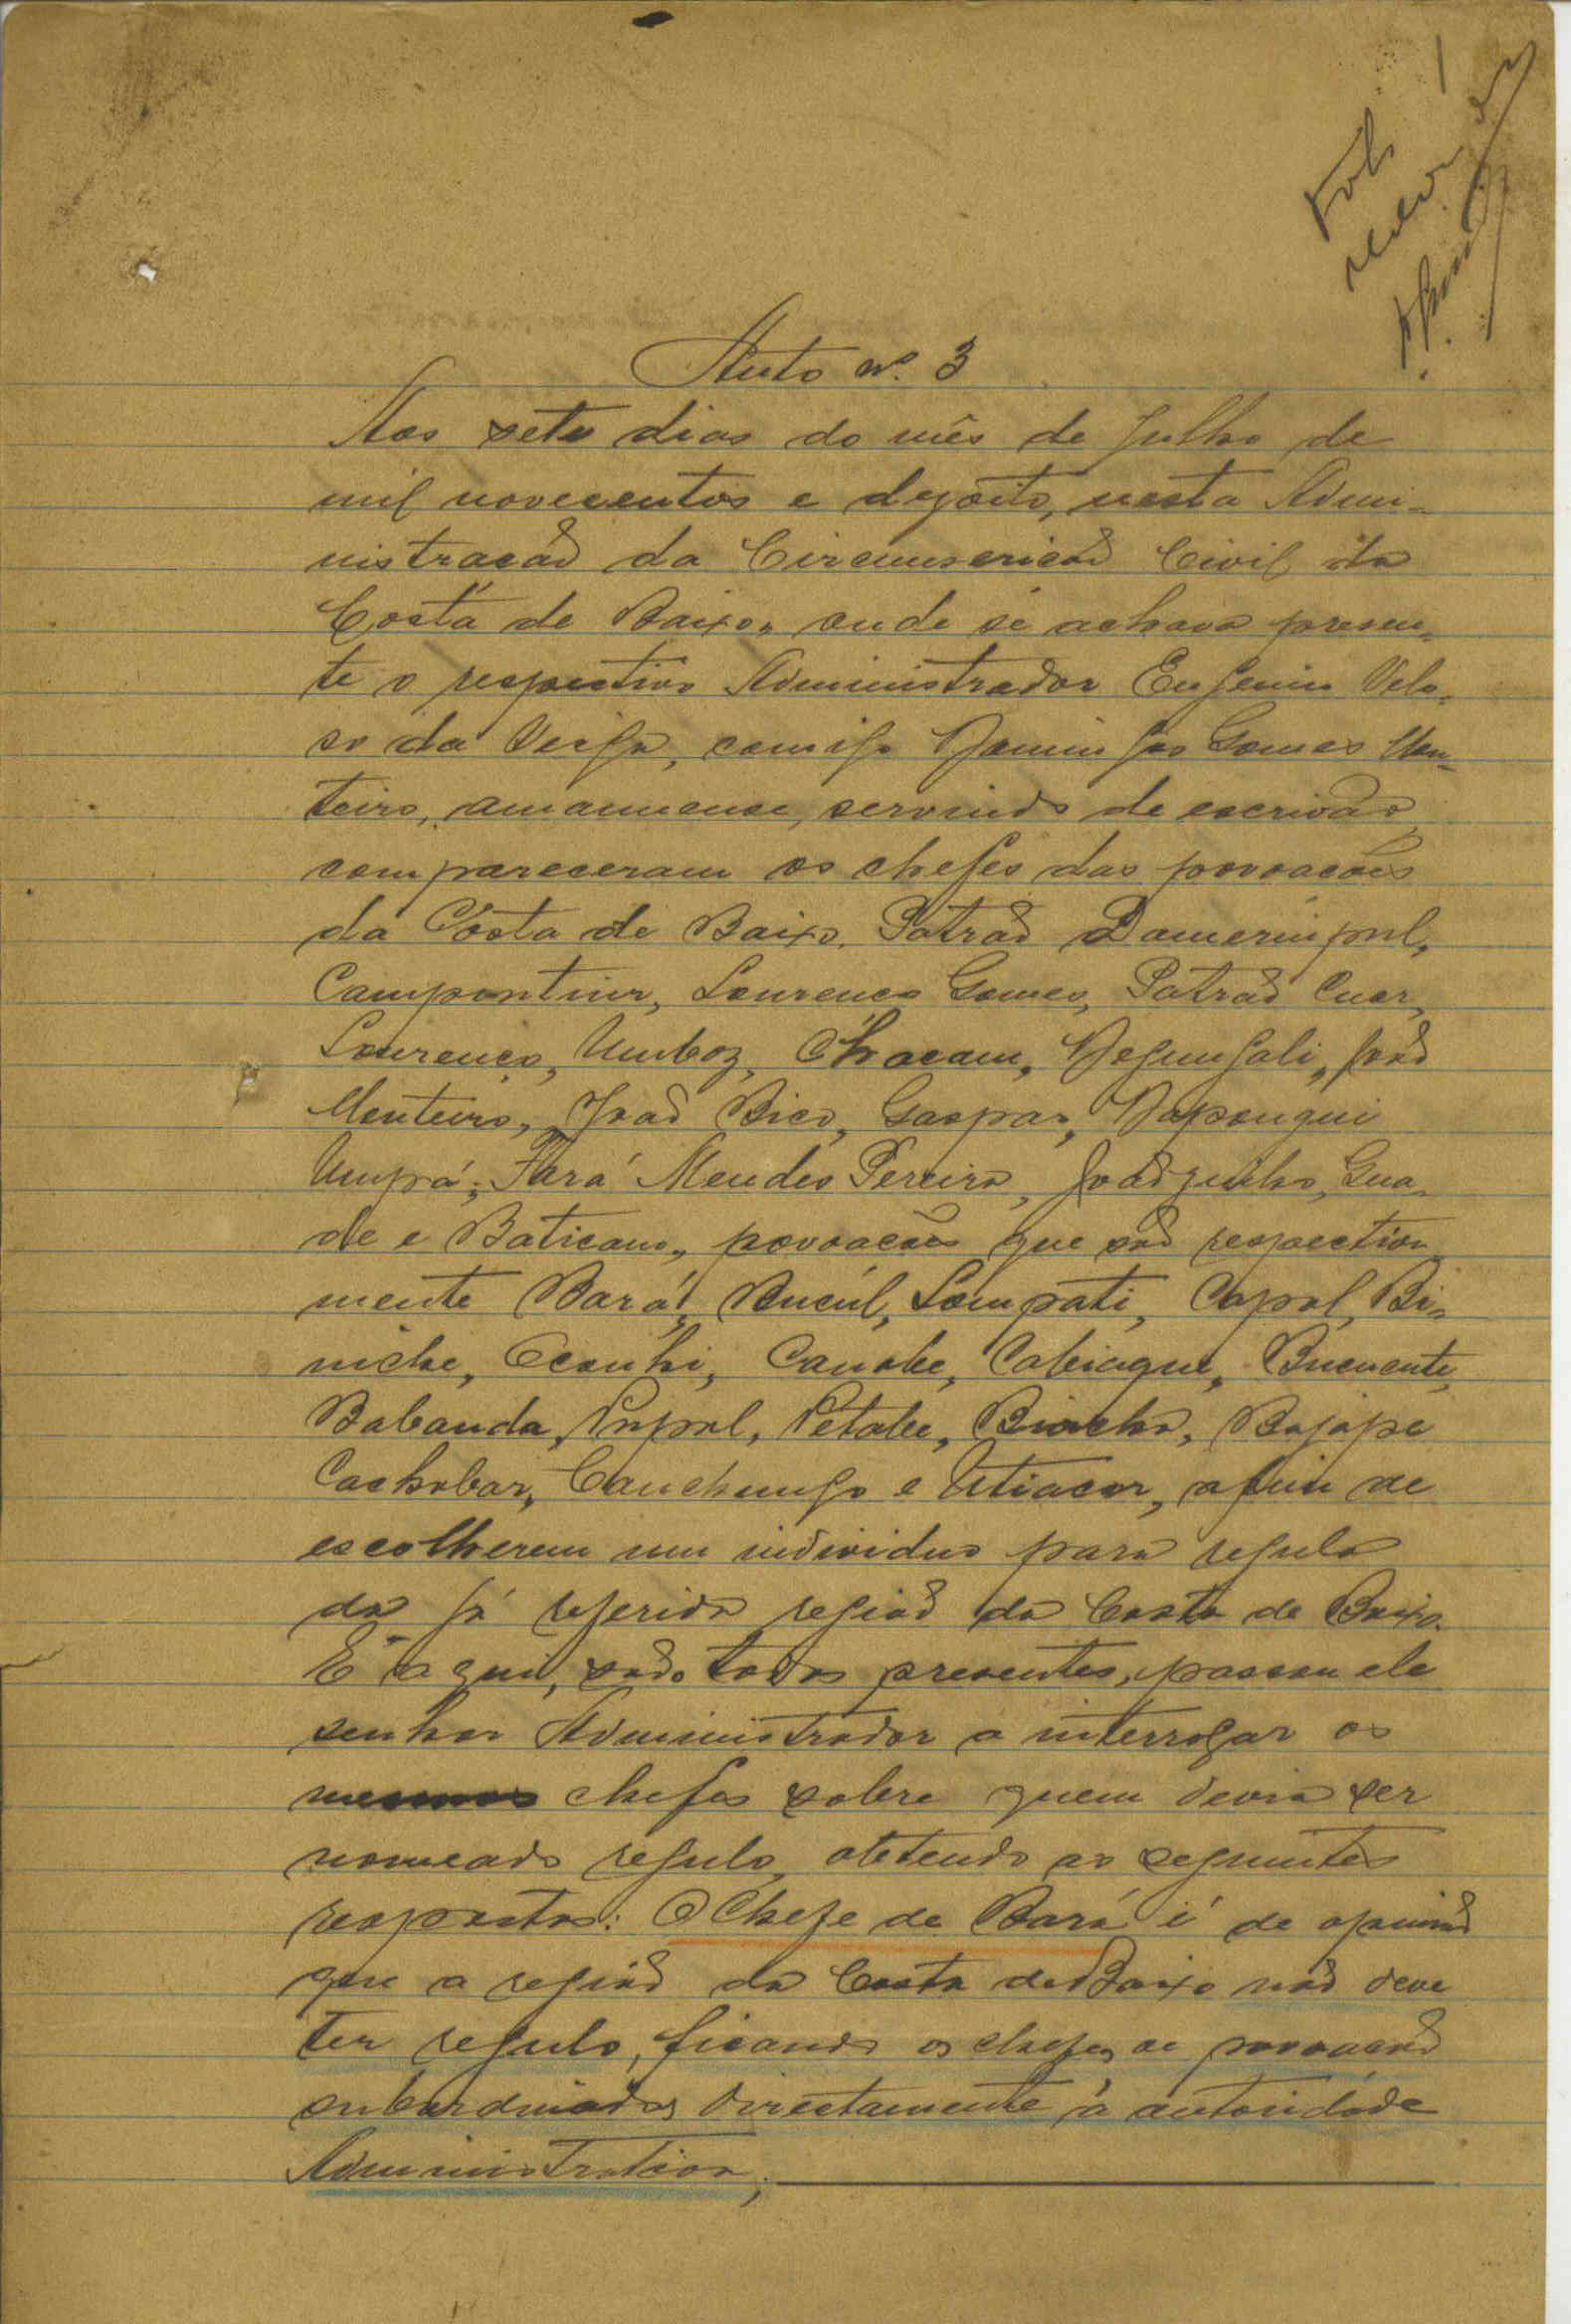 1
Auto nº. 3
Aos sete dias do mês de Julho de
mil novecentos e dezoito, nesta Admi-
nistracão da Circunscricão Civil da
Costa de Baixo, onde se achava presen-
te o respectivo Administrador Eugenio Velo-
so da Veiga, comigo Domingos Gomes Mon-
teiro, amanuense, servindo de escrivão,
compareceram os chefes das povoacões
da Costa de Baixo, Patrão Damerimpul,
Campontiur, Lourenco Gomes, Patrão Cuor,
Lourenço, Umboz, Chacam, Degungali, João
Monteiro, João Bico, Gaspar, Napongui
Umprá, Fará Mendes Pereira, Joãozinho, Gua-
de e Baticano, povoacões que são respectiva
mente Bará, Bucúl, Lompati, Capol, Bi-
niche, Oconhi, Canobe, Cabiaque, Bucucute,
Babanda, Pupul, Petabe, Biocho, Bajope
Cachobar, Canchungo e Utiacor, afim de
escolherem um individuo para regulo
da já referida região da Costa de Baixo.
E aqui, sendo todos presentes, passou ele
senhor Administrador a interrogar os
mesmos chefes sobre quem devia ser
nomeado regulo, obtendo as seguintes
respostas: O Chefe de Bará é de opinião
que a região da Costa de Baixo não deve
ter regulo, ficando os chefes de povoacão
subordinados directamente à autoridade
Administrativa;